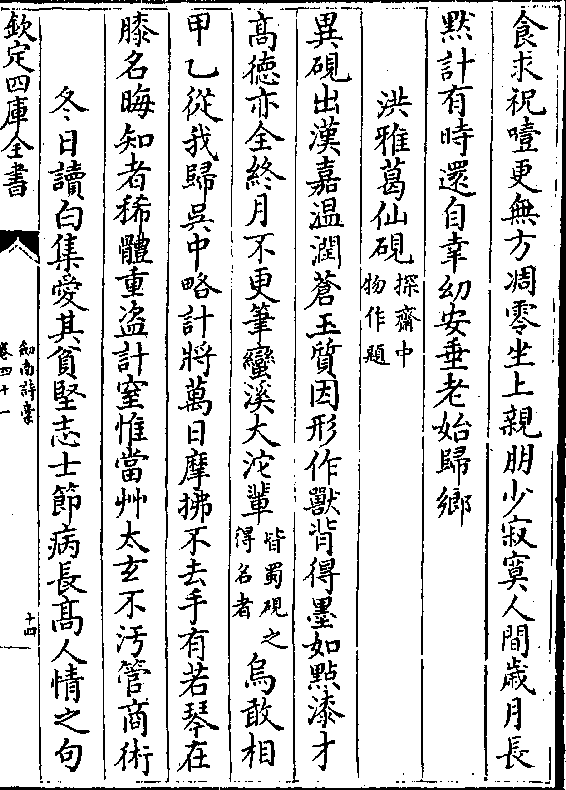 食求祝噎更無方凋零坐上親朋少寂寞人間歲月長
黙計有時還自幸幼安垂老始歸鄉
洪雅葛仙硯探齋中物作題
異硯出漢嘉温潤蒼玉質因形作獸背得墨如點漆才
髙徳亦全終月不更筆蠻溪大沱輩皆蜀硯之得名者烏敢相
甲乙從我歸吳中略計將萬日摩拂不去手有若琴在
膝名晦知者稀體重盗計窒惟當艸太玄不汚管商術
冬日讀白集愛其貧堅志士節病長髙人情之句
欽定四庫全書
劍南詩稾
卷四十一
十四